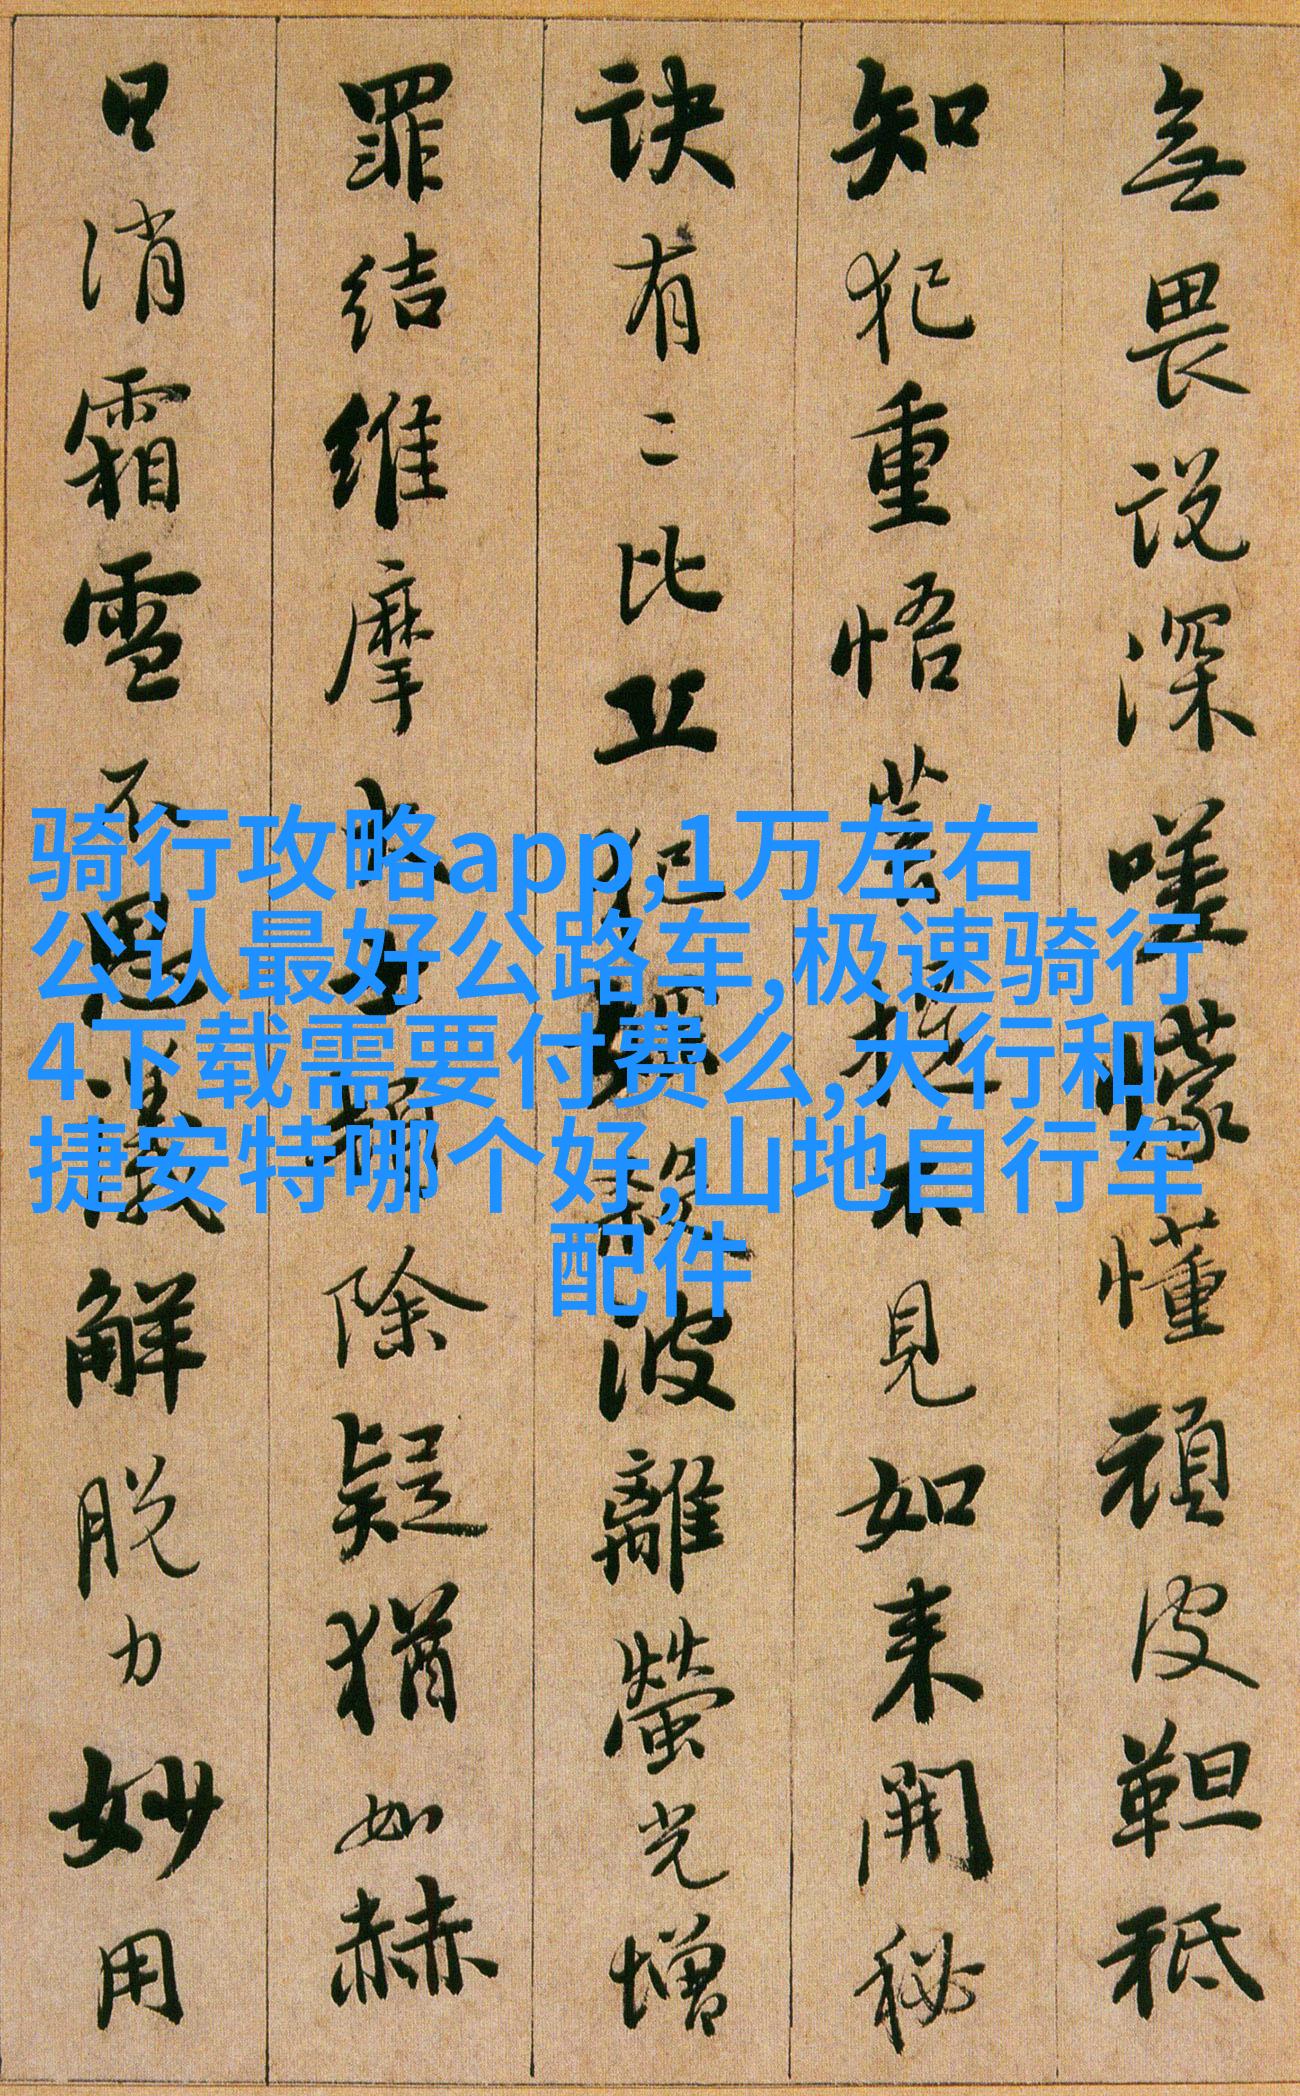 無畏説深嗟懞懂頑皮靼秪
知犯重悟菩提不見如来開秘
訣有二比丘犯婬殺波離螢光增
罪結維摩大士頓除疑猶如赫
日消霜雪不思議解脱力妙用
骑行攻略app,1万左右
公认最好公路车,极速骑行
4下载需要付费么,大行和
捷安特哪个好,山地自行车
配件